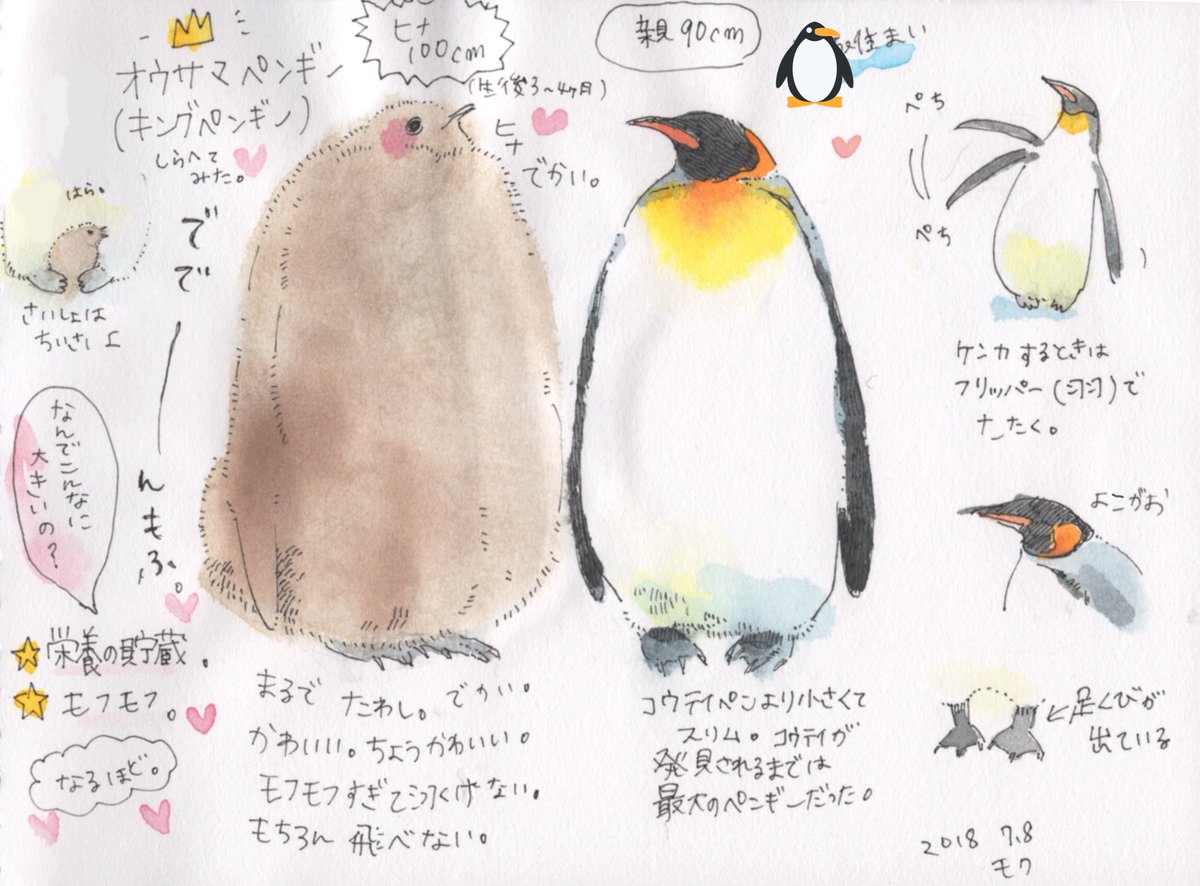 オウサマペンギン
(キングペンギン)
しらべて
みた。
ヒナ
100cm
(生後3〜4ヶ月)
ヒナ
でかい。
親90cm
住まい
はら。
さいしょは
ちいさいよ
ででーんもふ。
なんでこんなに
大きいの?
栄養の貯蔵。
モフモフ。
なるほど。
まるで たわし。でかい。
かわいい。ちょうかわいい。
モフモフすぎて泳げない。
もちろん 飛べない。
コウテイペンより小さくて
スリム。コウテイが
発見されるまでは
最大のペンギンだった。
ぺち
ぺち
ケンカするときは
フリッパー(羽)で
たたく。
よこがお
足くびが
出ている
2018 7.8
モク